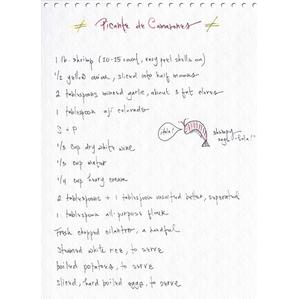 Picante de Camarones
1 lb. shrimp (20-25 count, easy peel shells on)
1/2 yellow onion, sliced into half moons
2 tablespoons minced garlic, about 3 fat cloves
1 tablespoon ají colorado
S + P
1/3 cup dry white wine
1/3 cup water
1/4 cup heavy cream
2 tablespoons + 1 tablespoon unsalted butter, separated
1 tablespoon all-purpose flour
Fresh chopped cilantro, a handful
Steamed white rice, to serve
boiled potatoes, to serve
Sliced, hard boiled eggs, to serve
hola!
shrimpy
says
hola!"